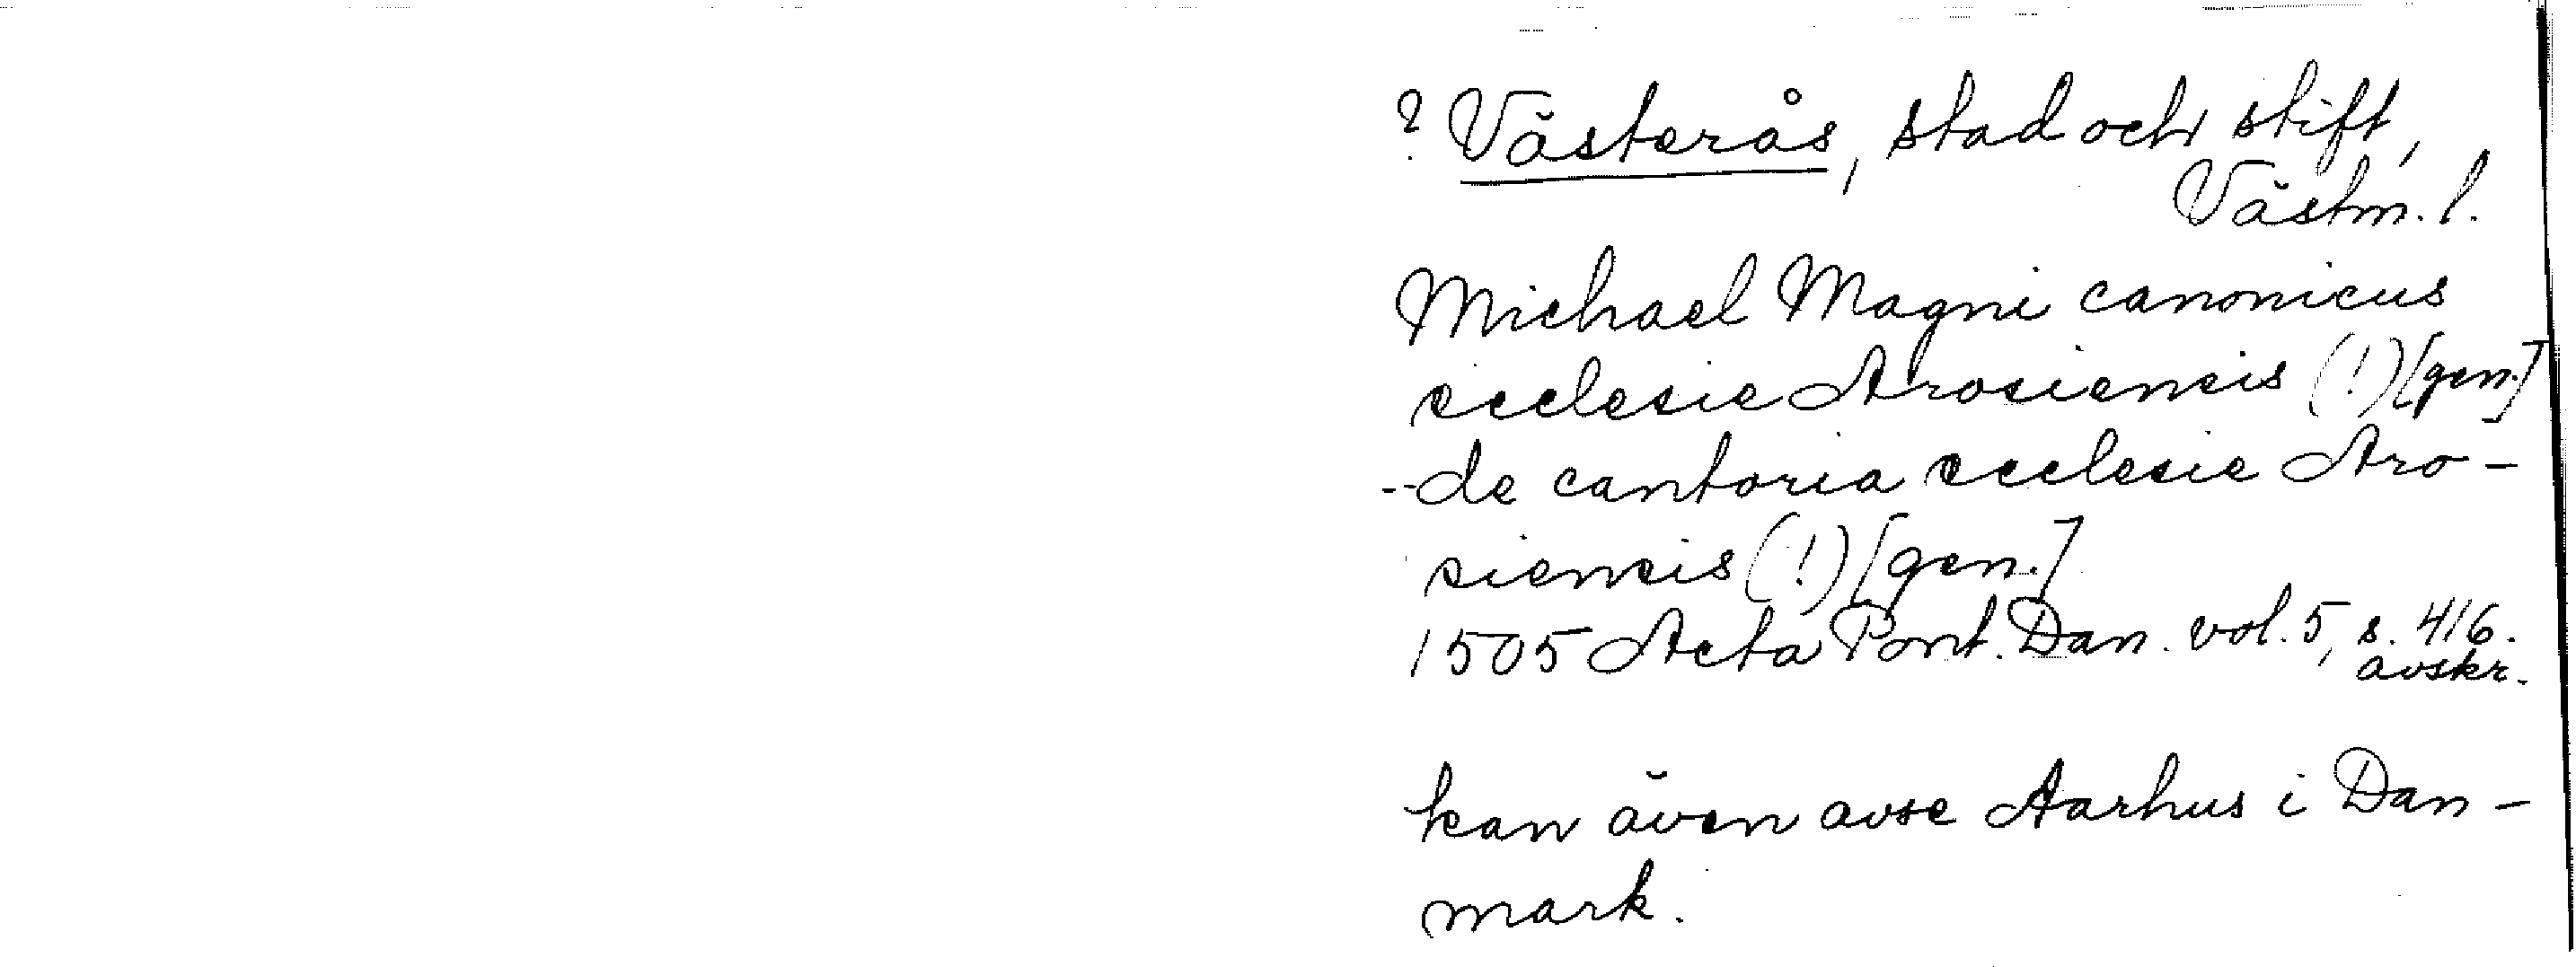 ? Västerås, stad och stift,
Västm. l.
Michael Magni canonicus
ecclesie Arosiensis (!) [gen.]
-- de cantoria ecclesie Aro-
siensis (!) [gen.]
1505 Acta Pont. Dan. vol. 5, s. 416.
avskr.
kan även avse Aarhus i Dan-
mark.